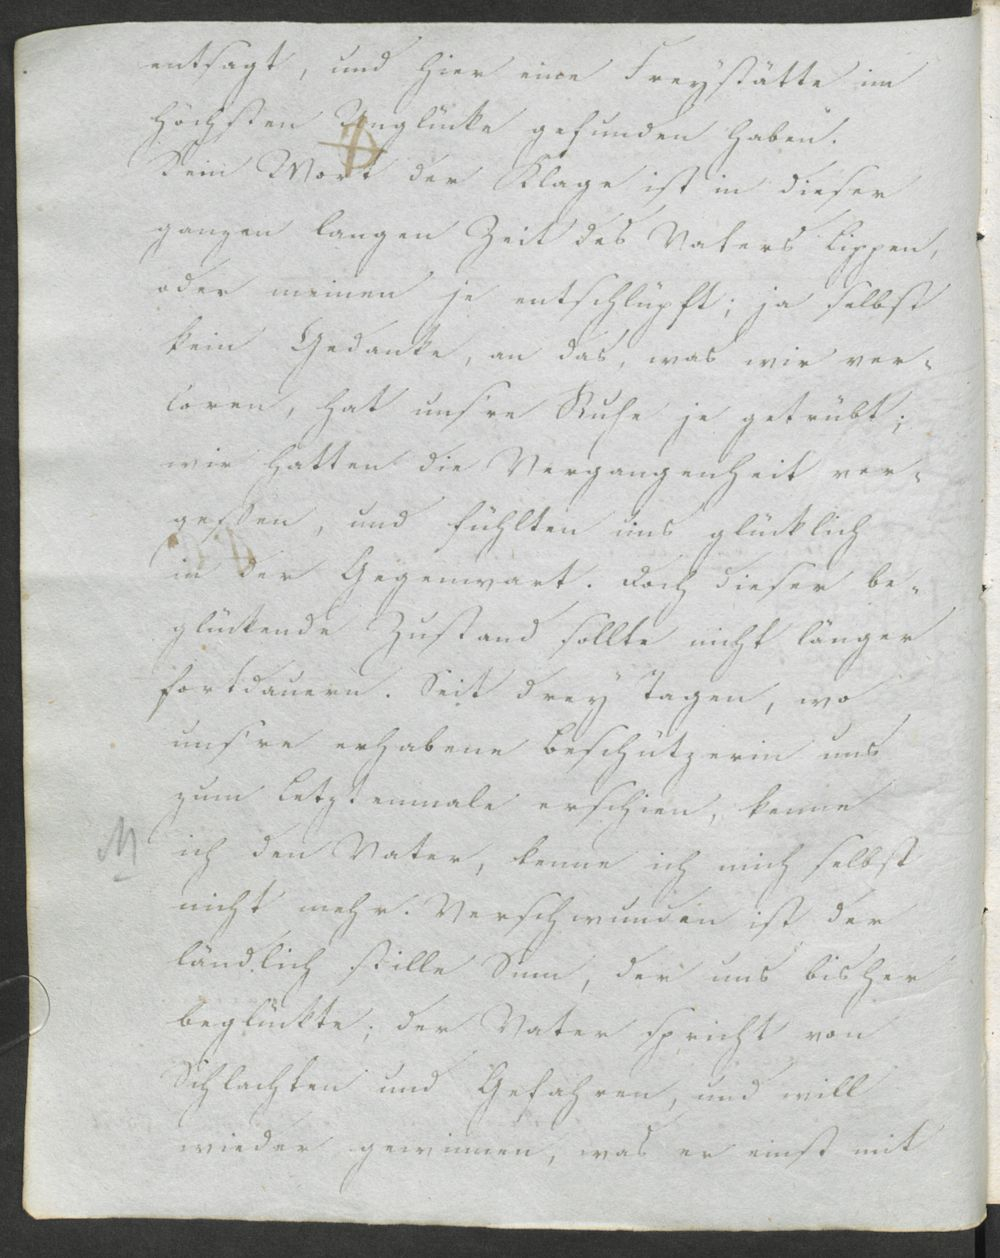 entsagt, und hier eine Freystätte im
höchsten Unglücke gefunden haben.
Kein Wort der Klage ist in dieser
ganzen langen Zeit des Vaters Lippen,
oder meinen je entschlüpft; ja selbst
kein Gedanke, an das, was wir ver-
loren, hat uns're Ruhe je getrübt;
wir hatten die Vergangenheit ver-
geßen, und fühlten uns glücklich
in der Gegenwart. Doch dieser be-
glückende Zustand sollte nicht länger
fortdauern. Seit drey Tagen, wo
uns're erhabene Beschützerin uns
zum letztenmale erschien, kenne
ich den Vater, kenne ich mich selbst
nicht mehr. Verschwunden ist der
ländlich stille Sinn, der uns bisher
beglückte; der Vater spricht von
Schlachten und Gefahren, und will
wieder gewinnen, was er einst mit